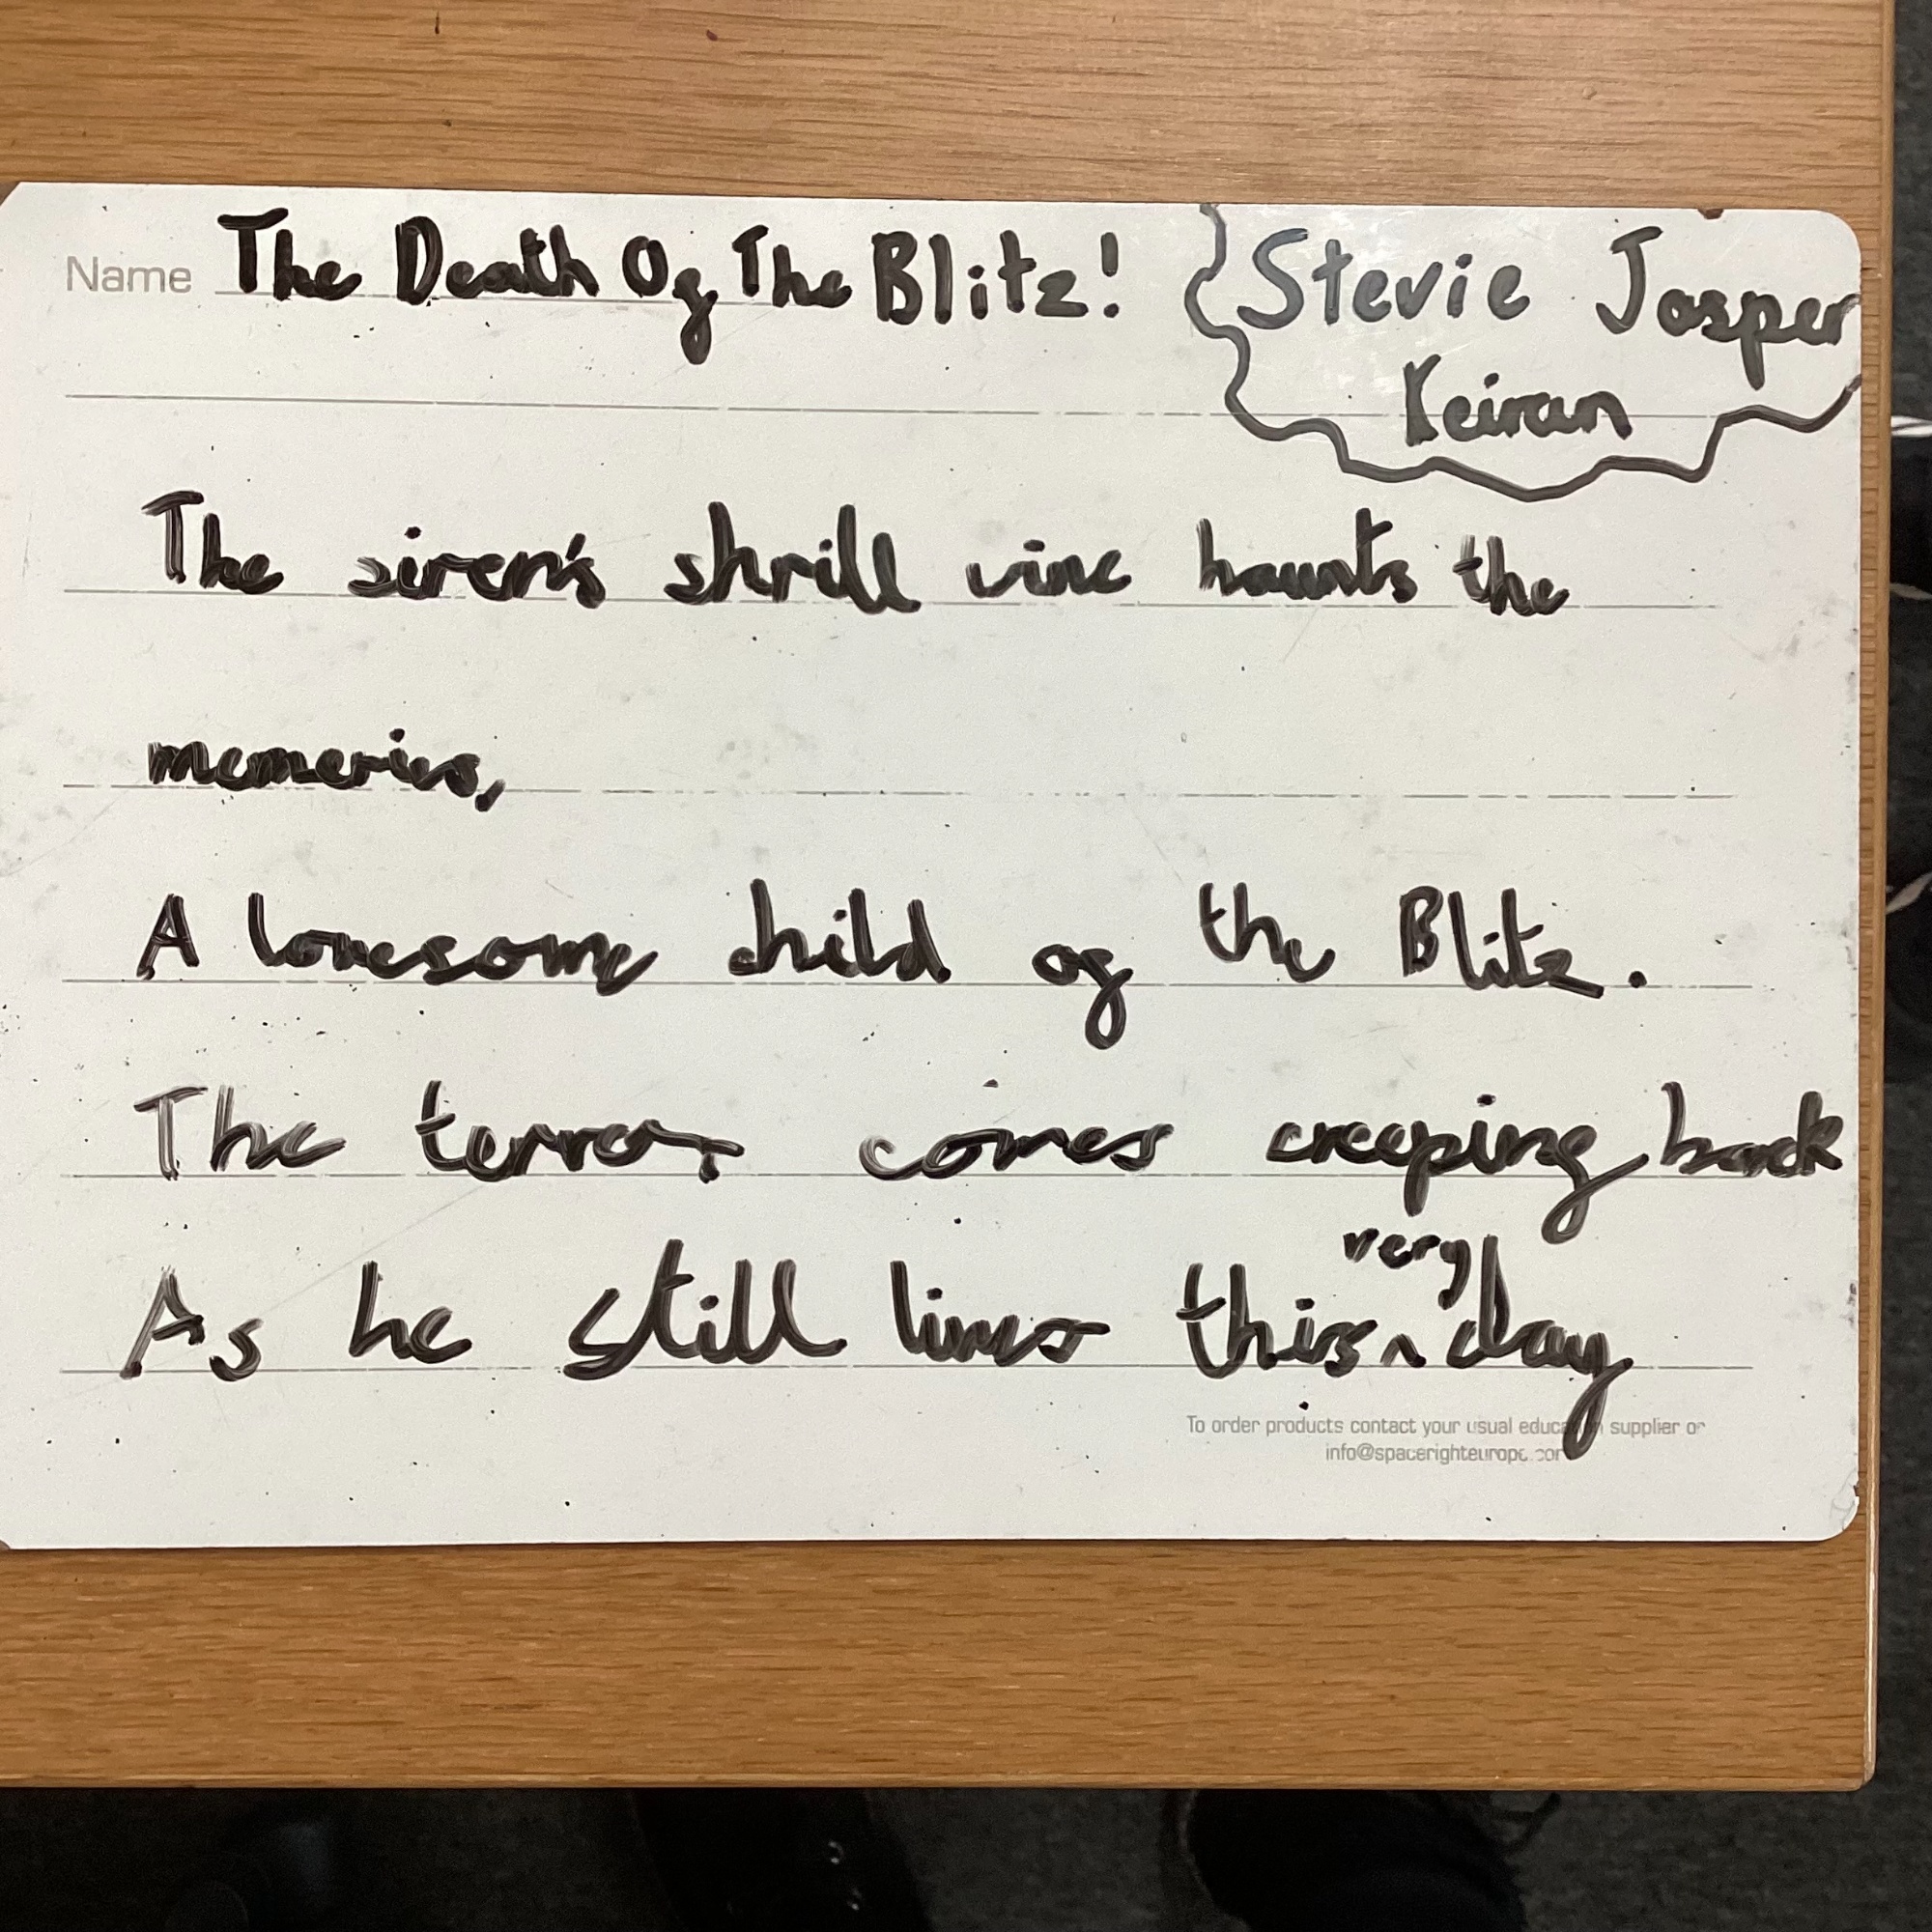 Name The Death Of The Blitz!
Stevie Jasper
Keiran
The siren's shrill vine haunts the
memeries,
A lonesome child of the Blitz.
The terror comes creeping back
As he still lives this very day
To order products contact your usual education supplier or
info@spacerighteurope.com